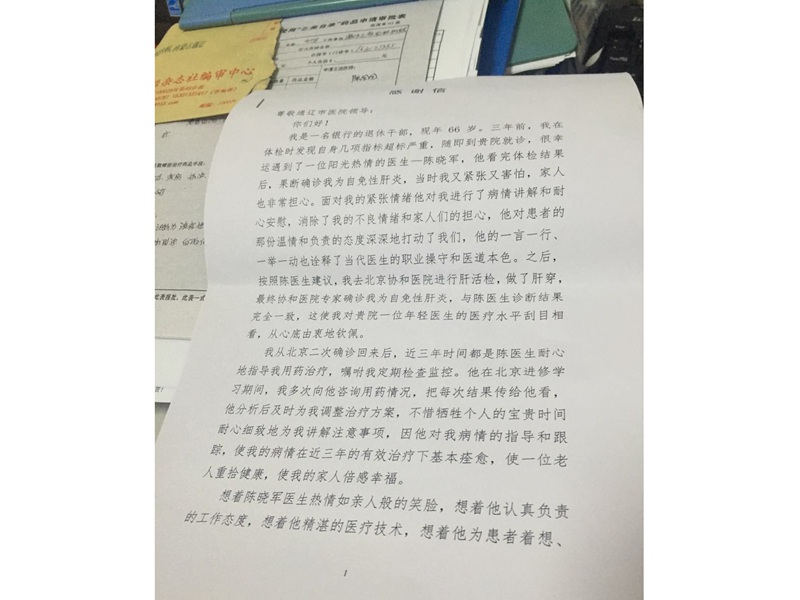 杂志社编审中心
药品申请审批表
感谢信
尊敬通辽市医院领导：
你们好！
我是一名银行的退休干部，现年 66 岁。三年前，我在
体检时发现自身几项指标超标严重，随即到贵院就诊，很幸
运遇到了一位阳光热情的医生—陈晓军，他看完体检结果
后，果断确诊我为自免性肝炎，当时我又紧张又害怕，家人
也非常担心。面对我的紧张情绪他对我进行了病情讲解和耐
心安慰，消除了我的不良情绪和家人们的担心，他对患者的
那份温情和负责的态度深深地打动了我们，他的一言一行、
一举一动也诠释了当代医生的职业操守和医道本色。之后，
按照陈医生建议，我去北京协和医院进行肝活检，做了肝穿，
最终协和医院专家确诊我为自免性肝炎，与陈医生诊断结果
完全一致，这使我对贵院一位年轻医生的医疗水平刮目相
看，从心底由衷地钦佩。
我从北京二次确诊回来后，近三年时间都是陈医生耐心
地指导我用药治疗，嘱咐我定期检查监控。他在北京进修学
习期间，我多次向他咨询用药情况，把每次结果传给他看，
他分析后及时为我调整治疗方案，不惜牺牲个人的宝贵时间
耐心细致地为我讲解注意事项，因他对我病情的指导和跟
踪，使我的病情在近三年的有效治疗下基本痊愈，使一位老
人重拾健康，使我的家人倍感幸福。
想着陈晓军医生热情如亲人般的笑脸，想着他认真负责
的工作态度，想着他精湛的医疗技术，想着他为患者着想、
1